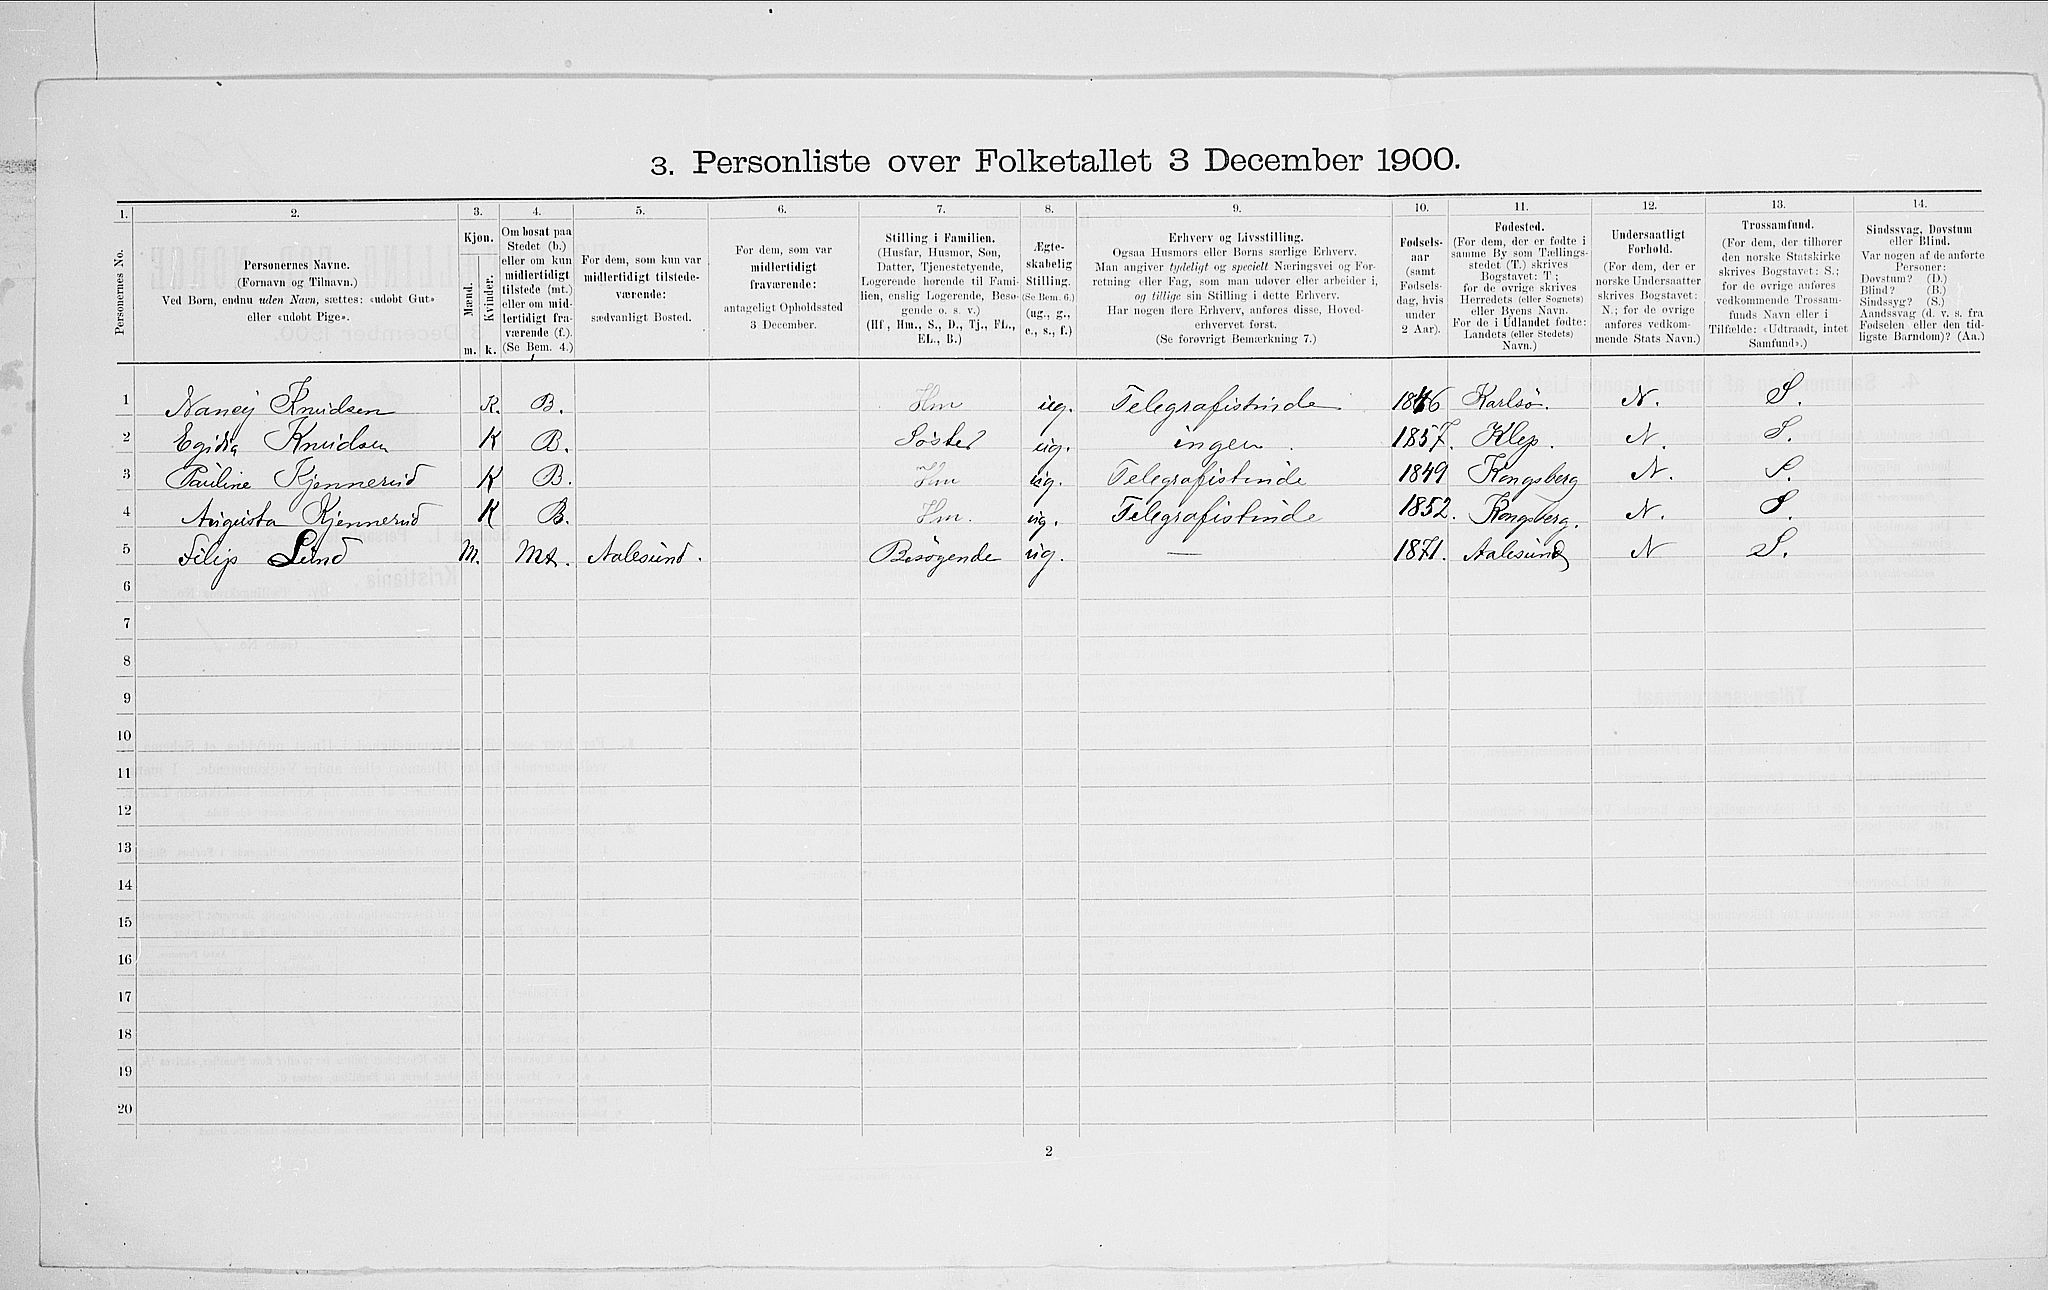 3. Personliste over Folketallet 3 December 1900.
1. 2. 3. 4. 5. 6. 7. 8. 9. 10. 11. 12. 13. 14.
Personernes No.
Personernes Navne.
(Fornavn og Tilnavn.)
Ved Børn, endnu uden Navn, sættes: «udøbt Gut»
eller «udøbt Pige».
Kjøn.
Mænd.
Kvinder.
m. k.
Om bosat paa
Stedet (b.)
eller om kun
midlertidigt
tilstede (mt.)
eller om mid-
lertidigt fra-
værende (f.).
(Se Bem. 4.)
For dem, som kun var
midlertidigt tilstede-
værende:
sædvanligt Bosted.
For dem, som var
midlertidigt
fraværende:
antageligt Opholdssted
3 December.
Stilling i Familien.
(Husfar, Husmor, Søn,
Datter, Tjenestetyende,
Logerende hørende til Fami-
lien, enslig Logerende, Besø-
gende o. s. v.)
(Hf., Hm., S., D., Tj., FL.,
EL., B.)
Ægte-
skabelig
Stilling.
(Se Bem. 6.)
(ug., g.,
e., s., f.)
Erhverv og Livsstilling.
Ogsaa Husmors eller Børns særlige Erhverv.
Man angiver tydeligt og specielt Næringsvei og For-
retning eller Fag, som man udøver eller arbeider i,
og tillige sin Stilling i dette Erhverv.
Har nogen flere Erhverv, anføres disse, Hoved-
erhvervet først.
(Se forøvrigt Bemærkning 7.)
Fødsels-
aar
(samt
Fødsels-
dag, hvis
under
2 Aar).
Fødested.
(For dem, der er fødte i
samme By som Tællings-
stedet (T.) skrives
Bogstavet: T;
for de øvrige skrives
Herredets (eller Sognets)
eller Byens Navn.
For de i Udlandet fødte:
Landets (eller Stedets)
Navn.)
Undersaatligt
Forhold.
(For dem, der er
norske Undersaatter
skrives Bogstavet:
N.; for de øvrige
anføres vedkom-
mende Stats Navn.)
Trossamfund.
(For dem, der tilhører
den norske Statskirke
skrives Bogstavet: S.;
for de øvrige anføres
vedkommende Trossam-
funds Navn eller i
Tilfælde: «Udtraadt, intet
Samfund».)
Sindssvag, Døvstum
eller Blind.
Var nogen af de anførte
Personer:
Døvstum? (D.)
Blind? (B.)
Sindssyg? (S.)
Aandssvag (d. v. s. fra
Fødselen eller den tid-
ligste Barndom)? (Aa.)
1 Nancy Knudsen K. B. Hm ug. Telegrafistinde 1846 Karlsø. N. S.
2 Egidia Knudsen K B. Søster ug. ingen. 1857. Klep. N. S.
3 Pauline Kjennerud K B. Hm ug. Telegrafistinde 1849 Kongsberg N. S.
4 Augusta Kjennerud K B. Hm. ug. Telegrafistinde 1852. Kongsberg. N. S.
5 Filip Lund M. Mt. Aalesund. Besøgende ug. — 1871. Aalesund N S.
6
7
8
9
10
11
12
13
14
15
16
17
18
19
20
2